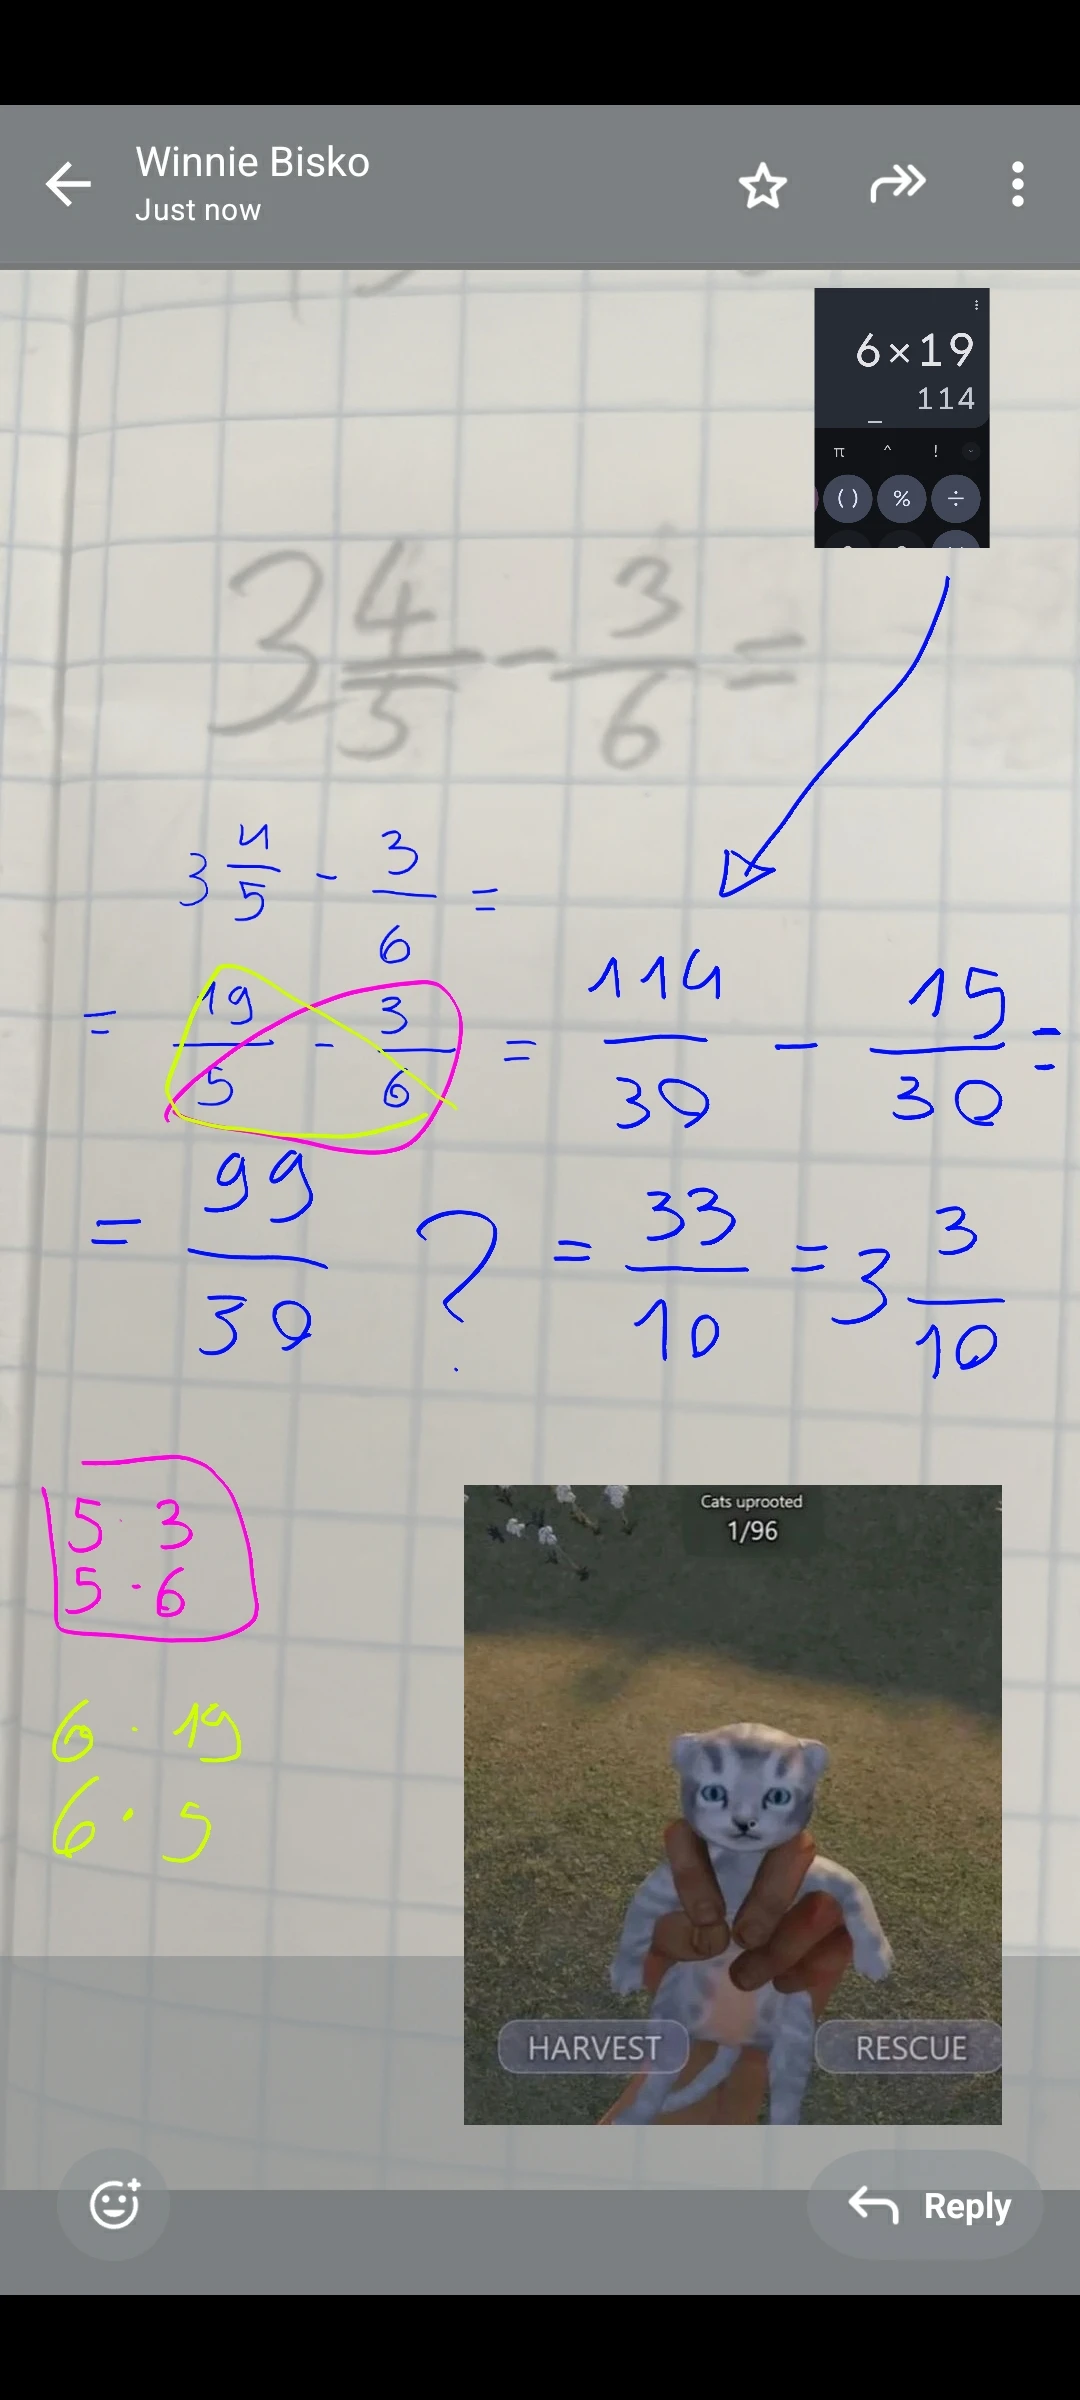 Winnie Bisko
Just now
6×19
114
π ^ !
() % ÷
3 4/5 - 3/6 =
3 4/5 - 3/6 =
= 19/5 - 3/6 = 114/30 - 15/30 =
= 99/30 ? = 33/10 = 3 3/10
5 · 3
5 · 6
6 · 19
6 · 5
Cats uprooted
1/96
HARVEST RESCUE
Reply